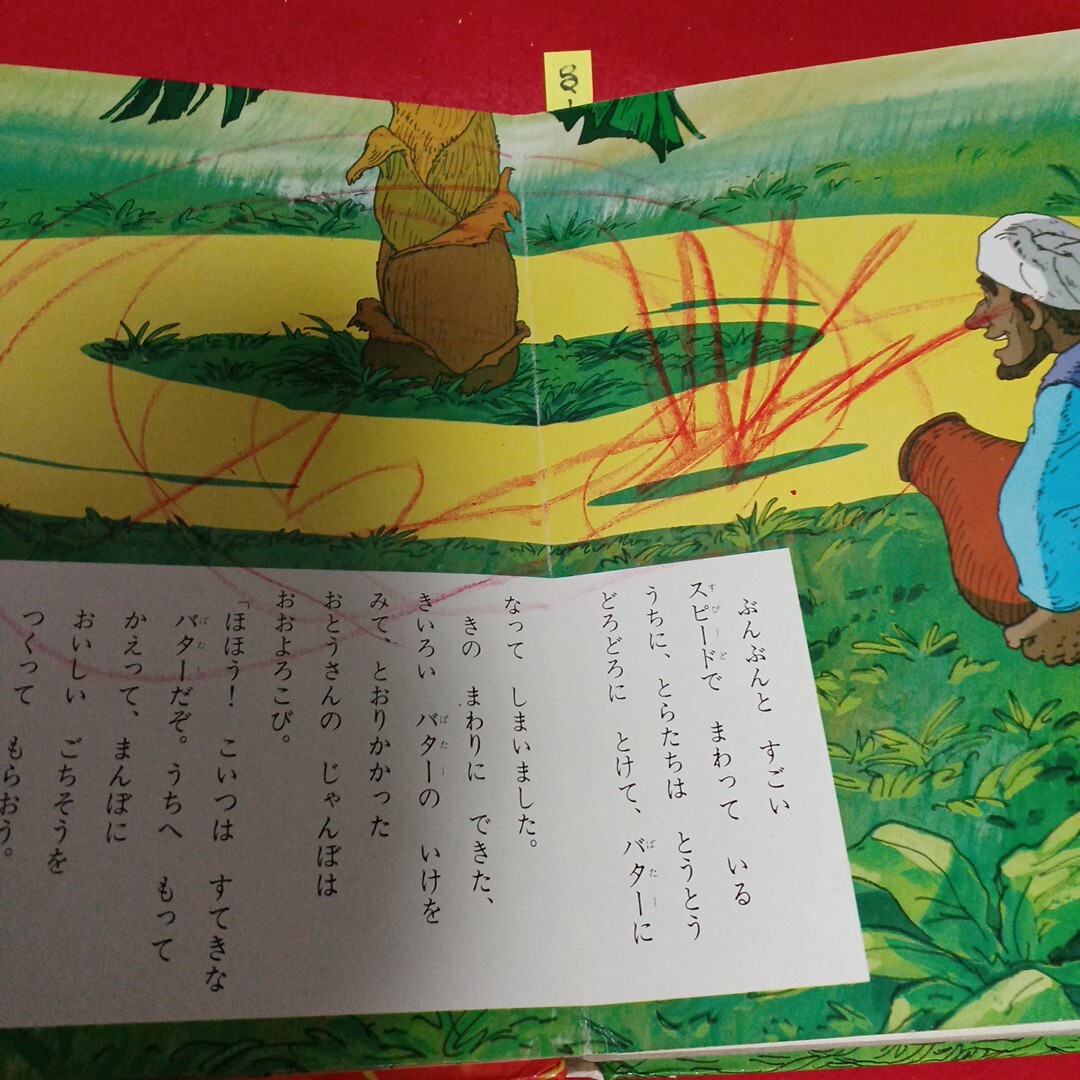 ぶんぶんと すごい
スピードで まわって いる
うちに、とらたちは とうとう
どろどろに とけて、バターに
なって しまいました。
きの まわりに できた、
きいろい バターの いけを
みて、とおりかかった
おとうさんの じゃんぼは
おおよろこび。
「ほほう! こいつは すてきな
バターだぞ。うちへ もって
かえって、まんぼに
おいしい ごちそうを
つくって もらおう。